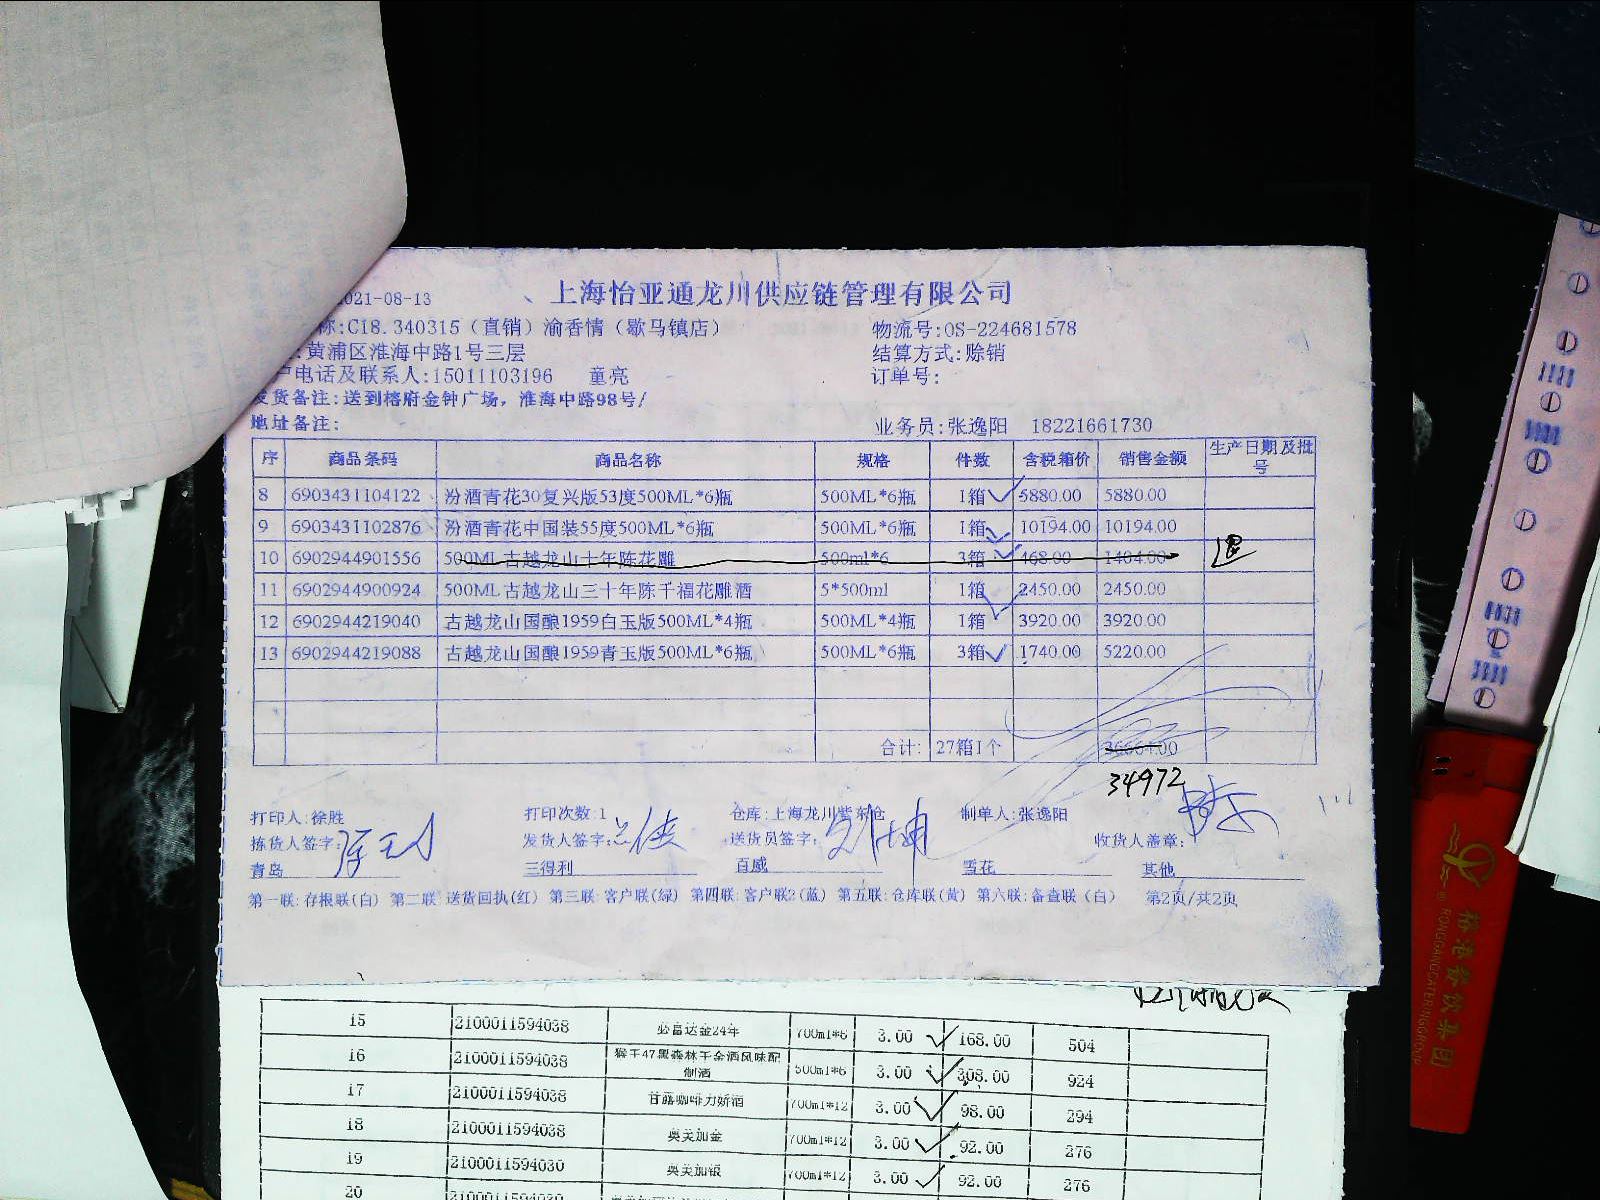 021-08-13
上海怡亚通龙川供应链管理有限公司
称:CI8.340315（直销）渝香情（歇马镇店）
物流号:OS-224681578
:黄浦区淮海中路1号三层
结算方式:赊销
户电话及联系人:15011103196 童亮
订单号:
发货备注:送到榕府金钟广场，淮海中路98号/
地址备注:
业务员:张逸阳 18221661730
序 商品条码 商品名称 规格 件数 含税箱价 销售金额 生产日期及批号
8 6903431104122 汾酒青花30复兴版53度500ML*6瓶 500ML*6瓶 1箱 5880.00 5880.00
9 6903431102876 汾酒青花中国装55度500ML*6瓶 500ML*6瓶 1箱 10194.00 10194.00
10 6902944901556 500ML古越龙山十年陈花雕 500ml*6 3箱 468.00 1404.00 退
11 6902944900924 500ML古越龙山三十年陈千福花雕酒 5*500ml 1箱 2450.00 2450.00
12 6902944219040 古越龙山国酿1959白玉版500ML*4瓶 500ML*4瓶 1箱 3920.00 3920.00
13 6902944219088 古越龙山国酿1959青玉版500ML*6瓶 500ML*6瓶 3箱 1740.00 5220.00
合计: 27箱1个
34972
打印人:徐胜 打印次数:1 仓库:上海龙川紫东仓 制单人:张逸阳
拣货人签字: 发货人签字: 送货员签字: 收货人盖章:
青岛 三得利 百威 雪花 其他
第一联:存根联(白) 第二联 送货回执(红) 第三联:客户联(绿) 第四联:客户联2(蓝) 第五联:仓库联(黄) 第六联:备查联（白） 第2页/共2页
15 2100011594038 必富达金24年 700ml*6 3.00 168.00 504
16 2100011594038 猴王47黑森林干金酒风味配制酒 500ml*6 3.00 308.00 924
17 2100011594038 甘露咖啡力娇酒 700ml*12 3.00 98.00 294
18 2100011594038 奥美加金 700ml*12 3.00 92.00 276
19 2100011594030 奥美加银 700ml*12 3.00 92.00 276
20
裕港餐饮集团
RONGGANGCATERINGGROUP